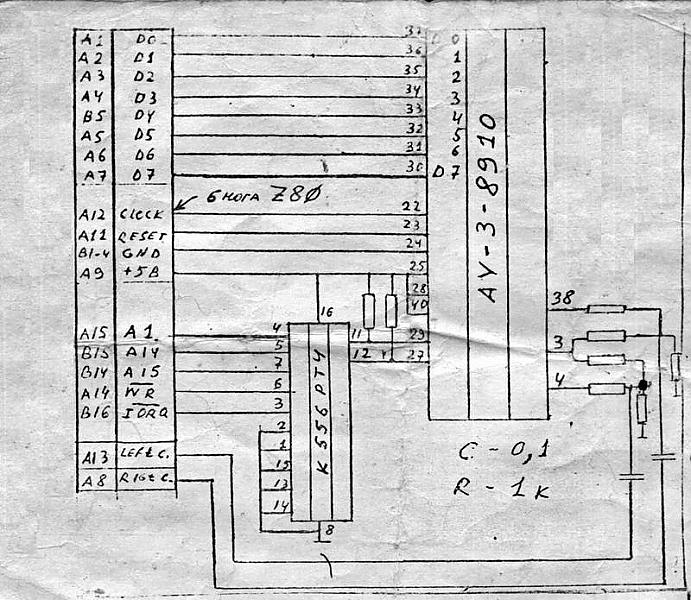 A1 D0 37 D 0
A2 D1 36 1
A3 D2 35 2
A4 D3 34 3
B5 D4 33 4
A5 D5 32 5
A6 D6 31 6
A7 D7 30 D 7
6 НОГА Z80
A12 CLOCK 22
A11 RESET 23
B1-4 GND 24
A9 +5В 25
28
40
16
AY-3-8910
38
3
4
A15 A1 4 11 29
B15 A14 5 12 27
B14 A15 7
A14 WR 6
B16 IORQ 3
2
1
15
13
14
8
К556РТ4
A13 LEFt C.
A8 RIGt C.
C - 0,1
R - 1к